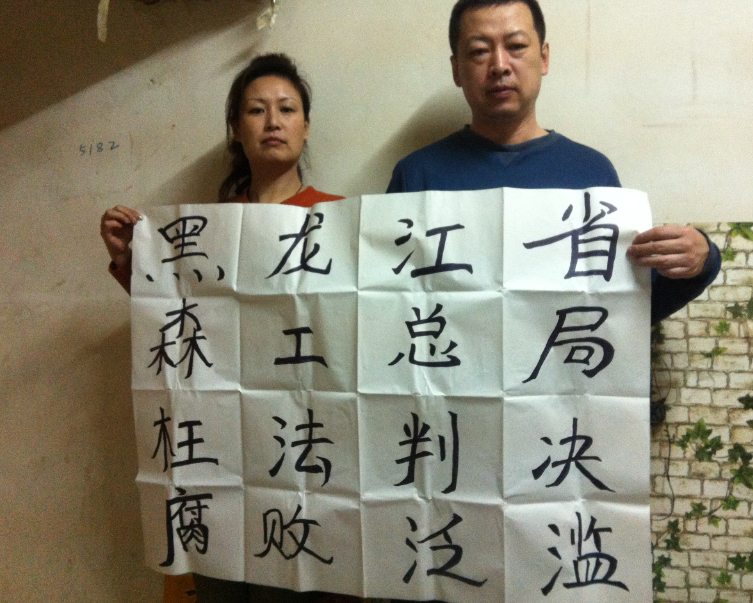 5182
黑龙江省
森工总局
枉法判决
腐败泛滥